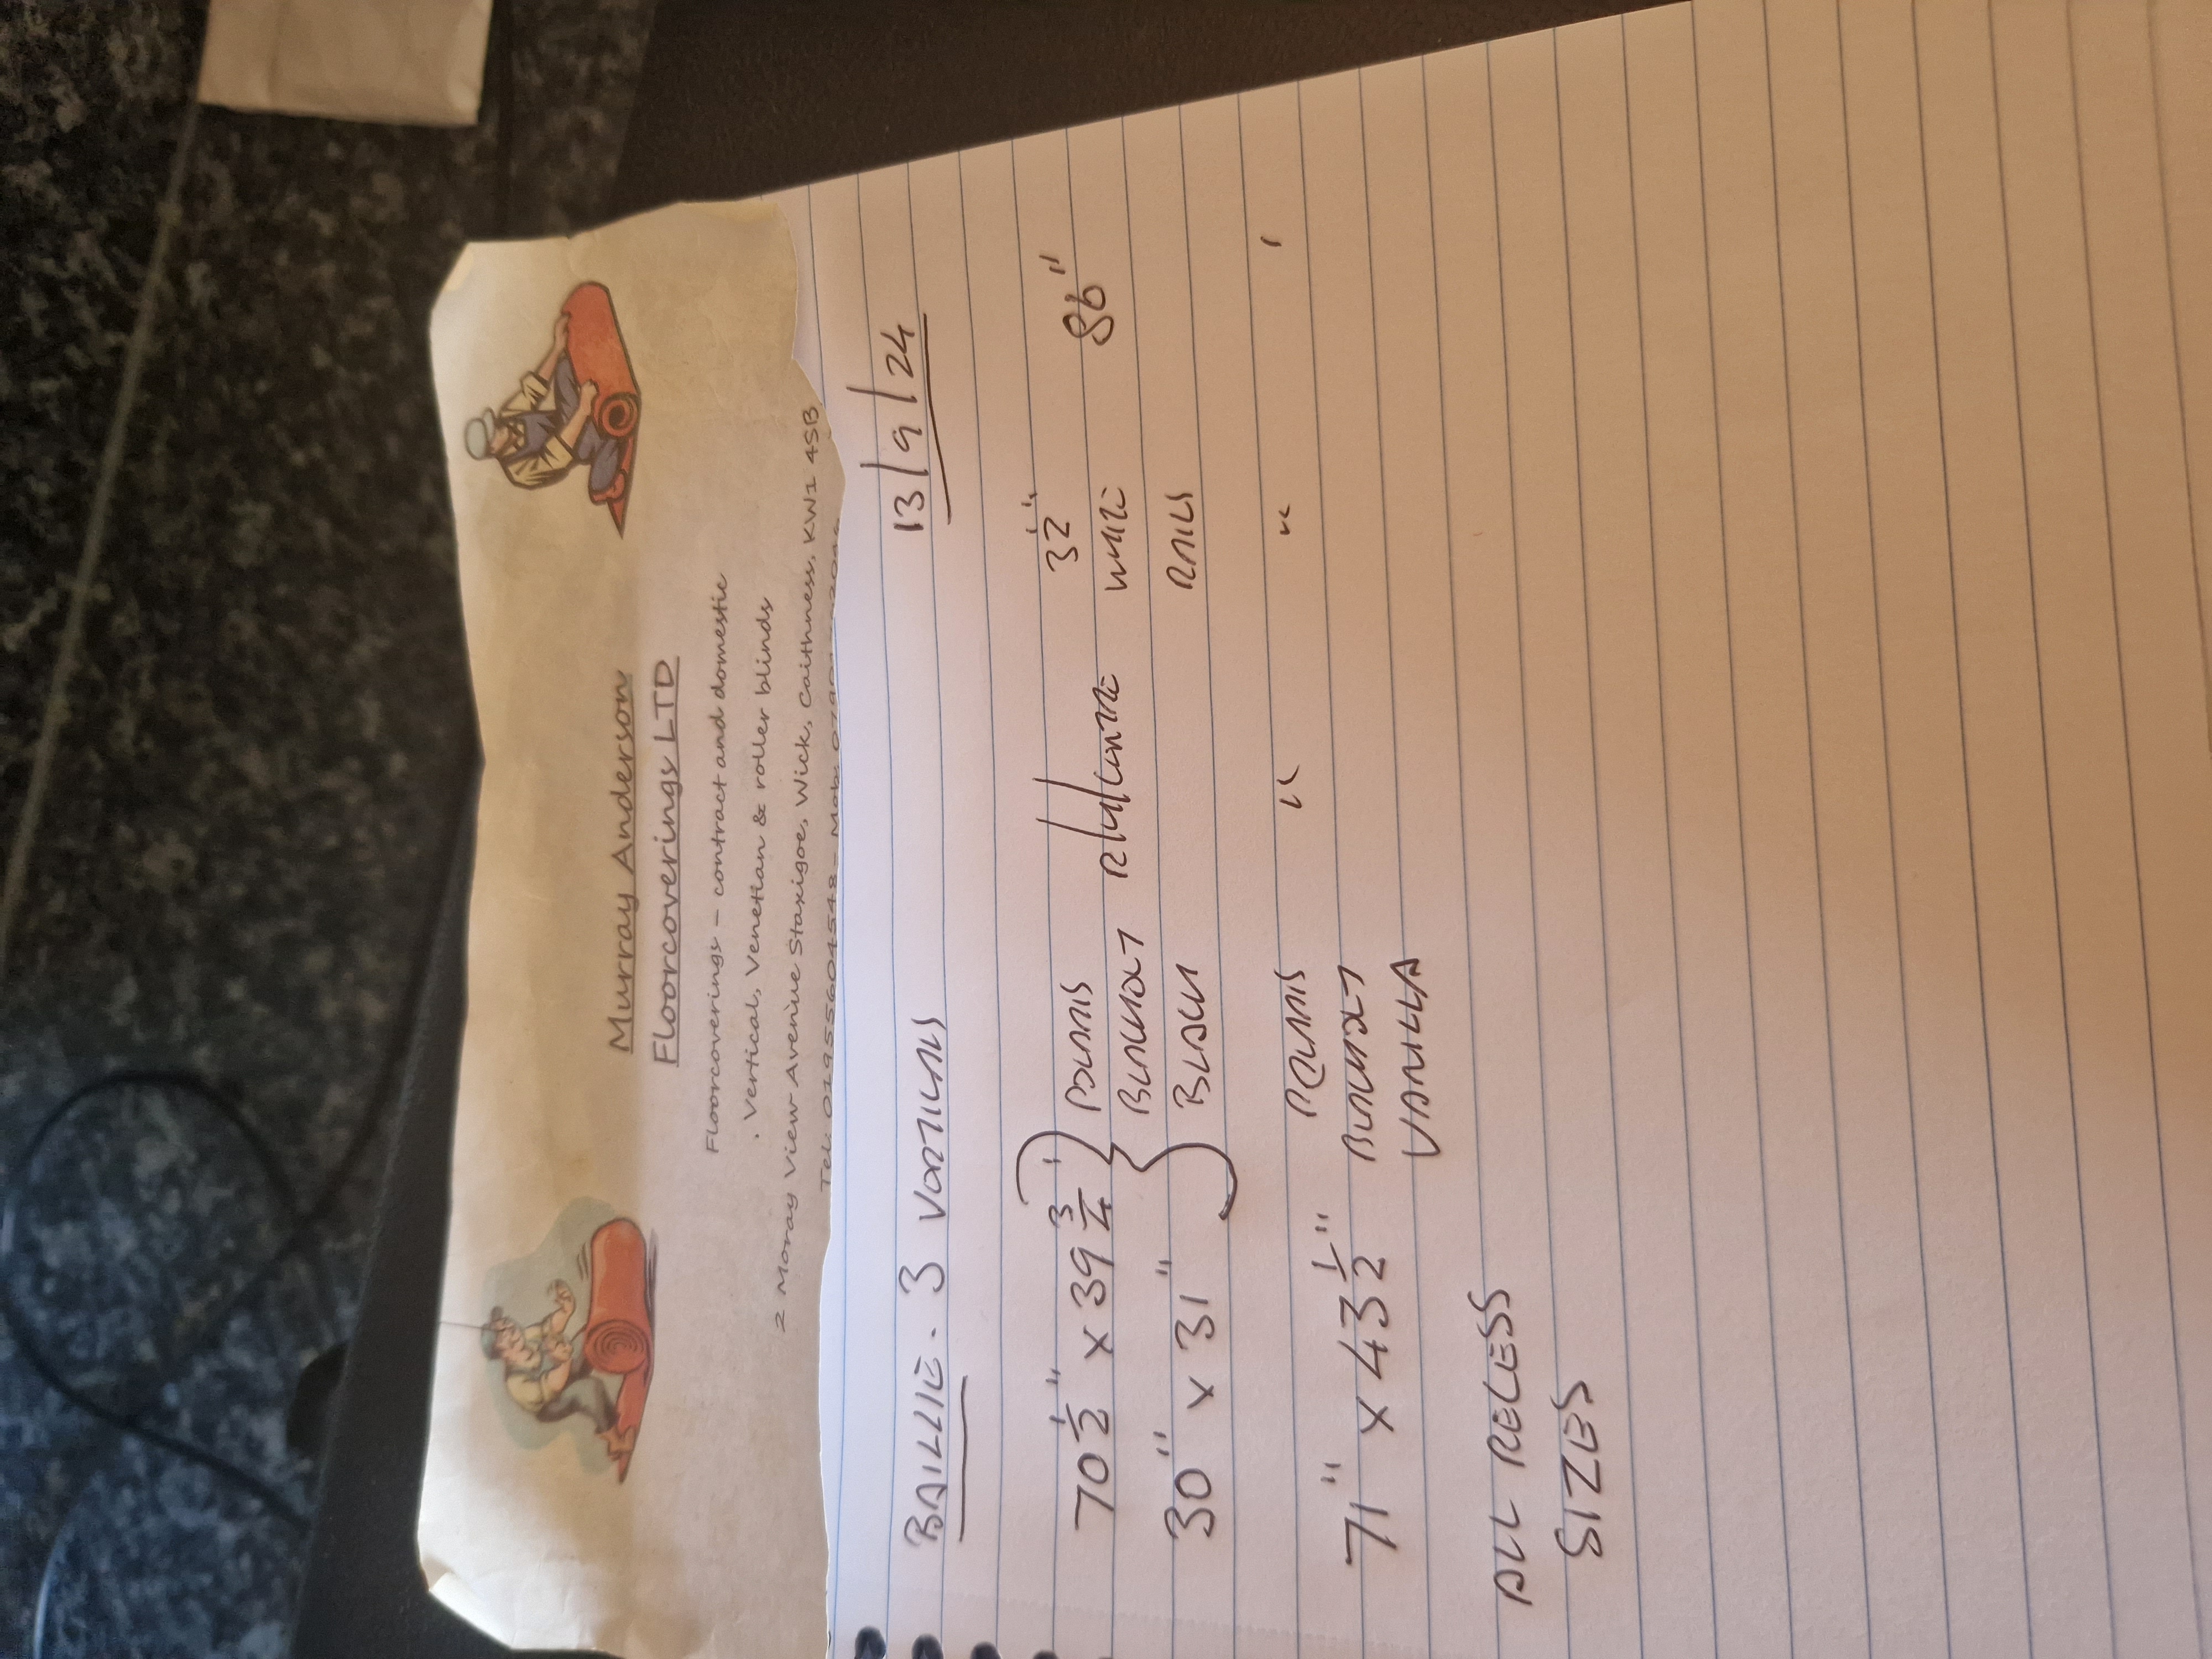 Murray Anderson
Floorcoverings LTD
Floorcoverings - contract and domestic
. Vertical, Venetian & roller blinds
2 Moray View Avenue Staxigoe, Wick, Caithness, KW1 4SB
Tel: 01955604548 - Mob:
BAILLIE. 3 13/9/24
70 1/2" x 39 3/4" 32"
BLACKOUT R/H/ WHITE 86"
30" x 31" BLACK RAILS
71" x 43 1/2" BLACKOUT " "
VANILLA
ALL RECESS
SIZES